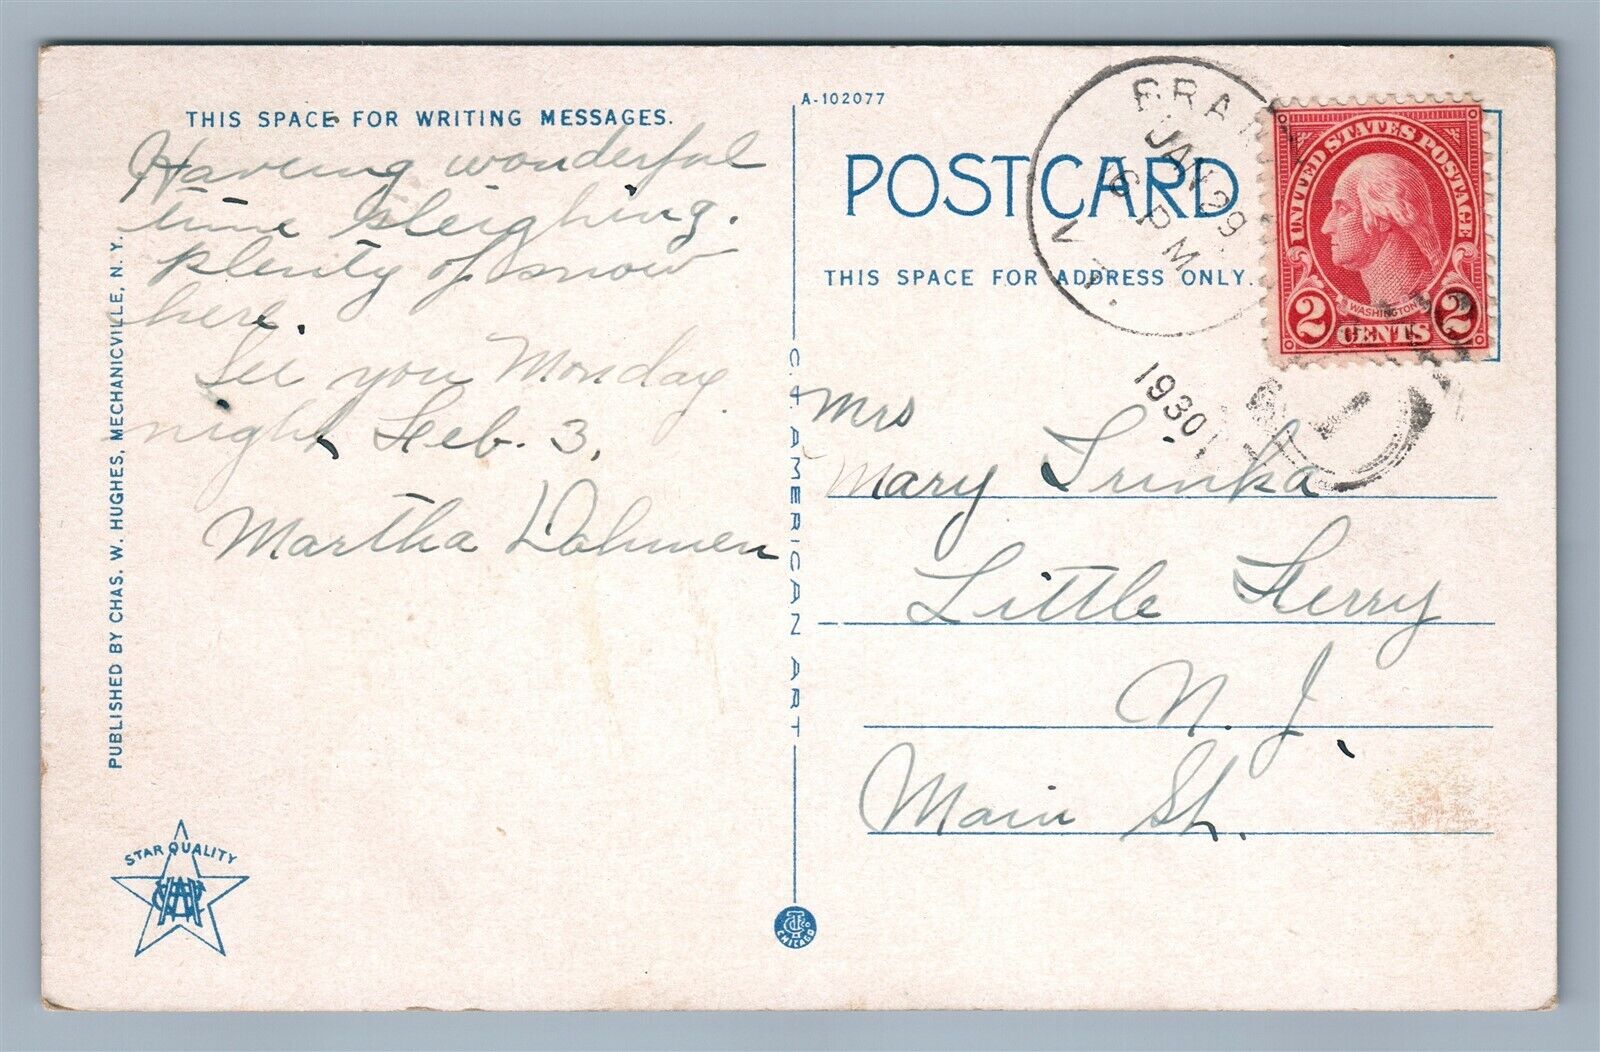 THIS SPACE FOR WRITING MESSAGES.
Having wonderful
time sleighing.
Plenty of snow
here.
See you Monday
night Feb. 3,
Martha Dohmen
PUBLISHED BY CHAS. W. HUGHES, MECHANICVILLE, N. Y.
STAR QUALITY
C.T. AMERICAN ART
CHICAGO
A-102077
POSTCARD
THIS SPACE FOR ADDRESS ONLY.
JAN 29
6 PM
N. Y.
1930
UNITED STATES POSTAGE
WASHINGTON
2 CENTS 2
Mrs
Mary Trinka
Little Ferry
N. J.
Main St.